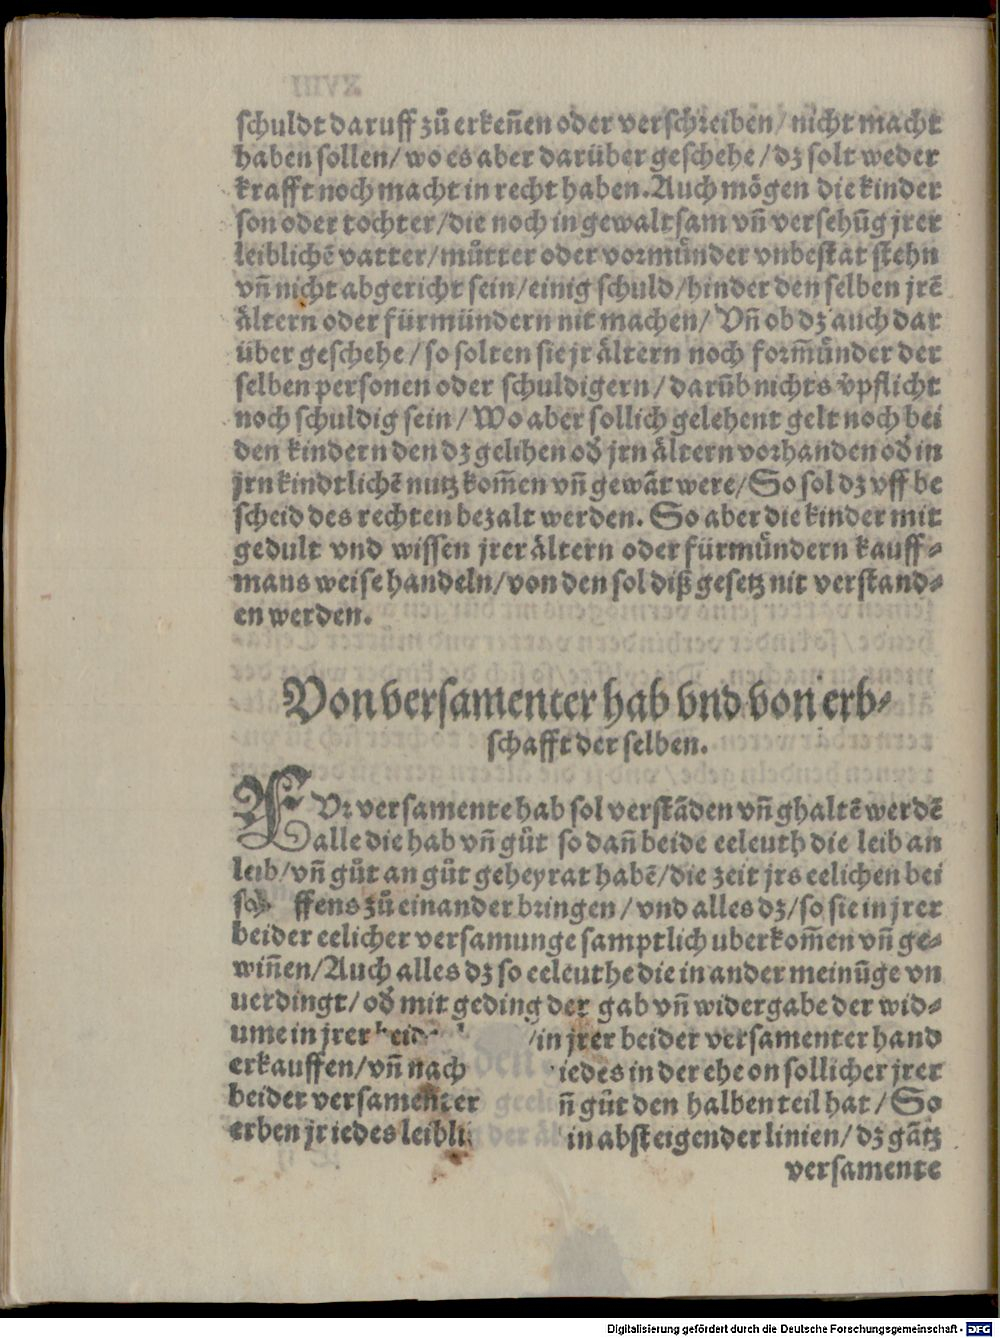 schuldt daruff zů erkeñen oder verschreiben / nicht macht
haben sollen / wo es aber darüber geschehe / dz solt weder
krafft noch macht in recht haben. Auch mögen die kinder
son oder tochter / die noch in gewaltsam vñ versehũg jrer
leiblichẽ vatter / můtter oder vormünder vnbestat stehn
vñ nicht abgericht sein / einig schuld / hinder den selben jrẽ
ältern oder fürmündern nit machen / Vñ ob dz auch dar
über geschehe / so solten sie jr ältern noch form̃ünder der
selben personen oder schuldigern / darüb nichts v̈pflicht
noch schuldig sein / Wo aber sollich gelehent gelt noch bei
den kindern den dz gelihen od̃ jrn ältern vorhanden od̃ in
jrn kindtlichẽ nutz kom̃en vñ gewãt were / So sol dz vff be
scheid des rechten bezalt werden. So aber die kinder mit
gedult vnd wissen jrer ältern oder fürmündern kauff⸗
mans weise handeln / von den sol diß gesetz nit verstand⸗
en werden.
Von versamenter hab vnd von erb⸗
schafft der selben.
FVr versamente hab sol verstãden vñ ghaltẽ werdẽ
alle die hab vñ gůt so dañ beide eeleuth die leib an
leib / vñ gůt an gůt geheyrat habẽ / die zeit jrs eelichen bei
ffens zů einander bringen / vnd alles dz / so sie in jrer
beider eelicher versamunge samptlich uberkom̃en vñ ge⸗
wiñen / Auch alles dz so eeleuthe die in ander meinũge vn
uerdingt / od̃ mit geding der gab vñ widergabe der wid⸗
ume in jrer / in jrer beider versamenter hand
erkauffen / vñ nach iedes in der ehe on sollicher jrer
beider versamenter ñ gůt den halben teil hat / So
erben jr iedes leibli in absteigender linien / dz gãtz
versamente
Digitalisierung gefördert durch die Deutsche Forschungsgemeinschaft - DFG